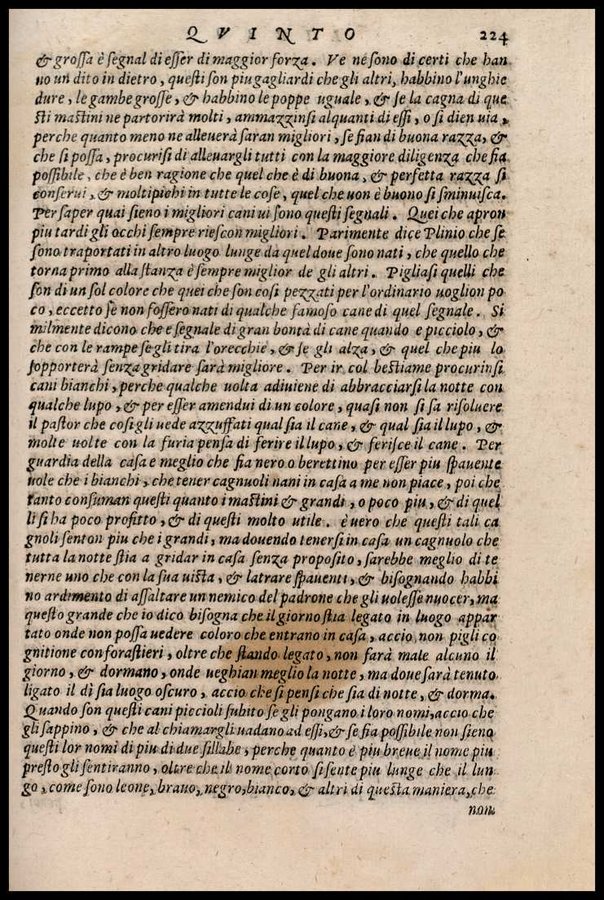 QVINTO 224
& grossa è segnal di esser di maggior forza. Ve ne sono di certi che han
no un dito in dietro, questi son piu gagliardi che gli altri, habbino l'unghie
dure, le gambe grosse, & habbino le poppe uguale, & se la cagna di que
sti mastini ne partorirà molti, ammazzinsi alquanti di essi, o si dien via,
perche quanto meno ne alleuerà saran migliori, se fian di buona razza, &
che si possa, procurisi di alleuargli tutti con la maggiore diligenza che fia
possibile, che è ben ragione che quel che è di buona, & perfetta razza si
conserui, & moltipichi in tutte le cose, quel che non è buono si sminuisca.
Per saper quai sieno i migliori cani ui sono questi segnali. Quei che apron
piu tardi gli occhi sempre riescon migliori. Parimente dice Plinio che se
sono traportati in altro luogo lunge da quel doue sono nati, che quello che
torna primo alla stanza è sempre miglior de gli altri. Pigliasi quelli che
son di un sol colore che quei che son cosi pezzati per l'ordinario uoglion po
co, eccetto se non fossero nati di qualche famoso cane di quel segnale. Si
milmente dicono che e segnale di gran bontà di cane quando e picciolo, &
che con le rampe se gli tira l'orecchie, & se gli alza, & quel che piu lo
sopporterà senza gridare sarà migliore. Per ir col bestiame procurinsi
cani bianchi, perche qualche uolta adiuiene di abbracciarsi la notte con
qualche lupo, & per esser amendui di un colore, quasi non si sa risoluere
il pastor che cosi gli uede azzuffati qual sia il cane, & qual sia il lupo, &
molte uolte con la furia pensa di ferire il lupo, & ferisce il cane. Per
guardia della casa e meglio che sia nero o berettino per esser piu spauente
uole che i bianchi, che tener cagnuoli nani in casa a me non piace, poi che
tanto consuman questi quanto i mastini & grandi, o poco piu, & di quel
li si ha poco profitto, & di questi molto utile. è uero che questi tali ca
gnoli senton piu che i grandi, ma douendo tenersi in casa un cagnuolo che
tutta la notte stia a gridar in casa senza proposito, sarebbe meglio di te
nerne uno che con la sua uista, & latrare spauenti, & bisognando habbi
no ardimento di assaltare un nemico del padrone che gli uolesse nuocer, ma
questo grande che io dico bisogna che il giorno stia legato in luogo appar
tato onde non possa uedere coloro che entrano in casa, accio non pigli co
gnitione con forastieri, oltre che stando legato, non farà male alcuno il
giorno, & dormano, onde ueghian meglio la notte, ma doue sarà tenuto
ligato il dì sia luogo oscuro, accio che si pensi che sia di notte, & dorma.
Quando son questi cani piccioli subito se gli pongano i loro nomi, accio che
gli sappino, & che al chiamargli uadano ad essi, & se fia possibile non sieno
questi lor nomi di piu di due sillabe, perche quanto è piu breue il nome piu
presto gli sentiranno, oltre che il nome corto si sente piu lunge che il lun
go, come sono leone, brauo, negro, bianco, & altri di questa maniera, che
non